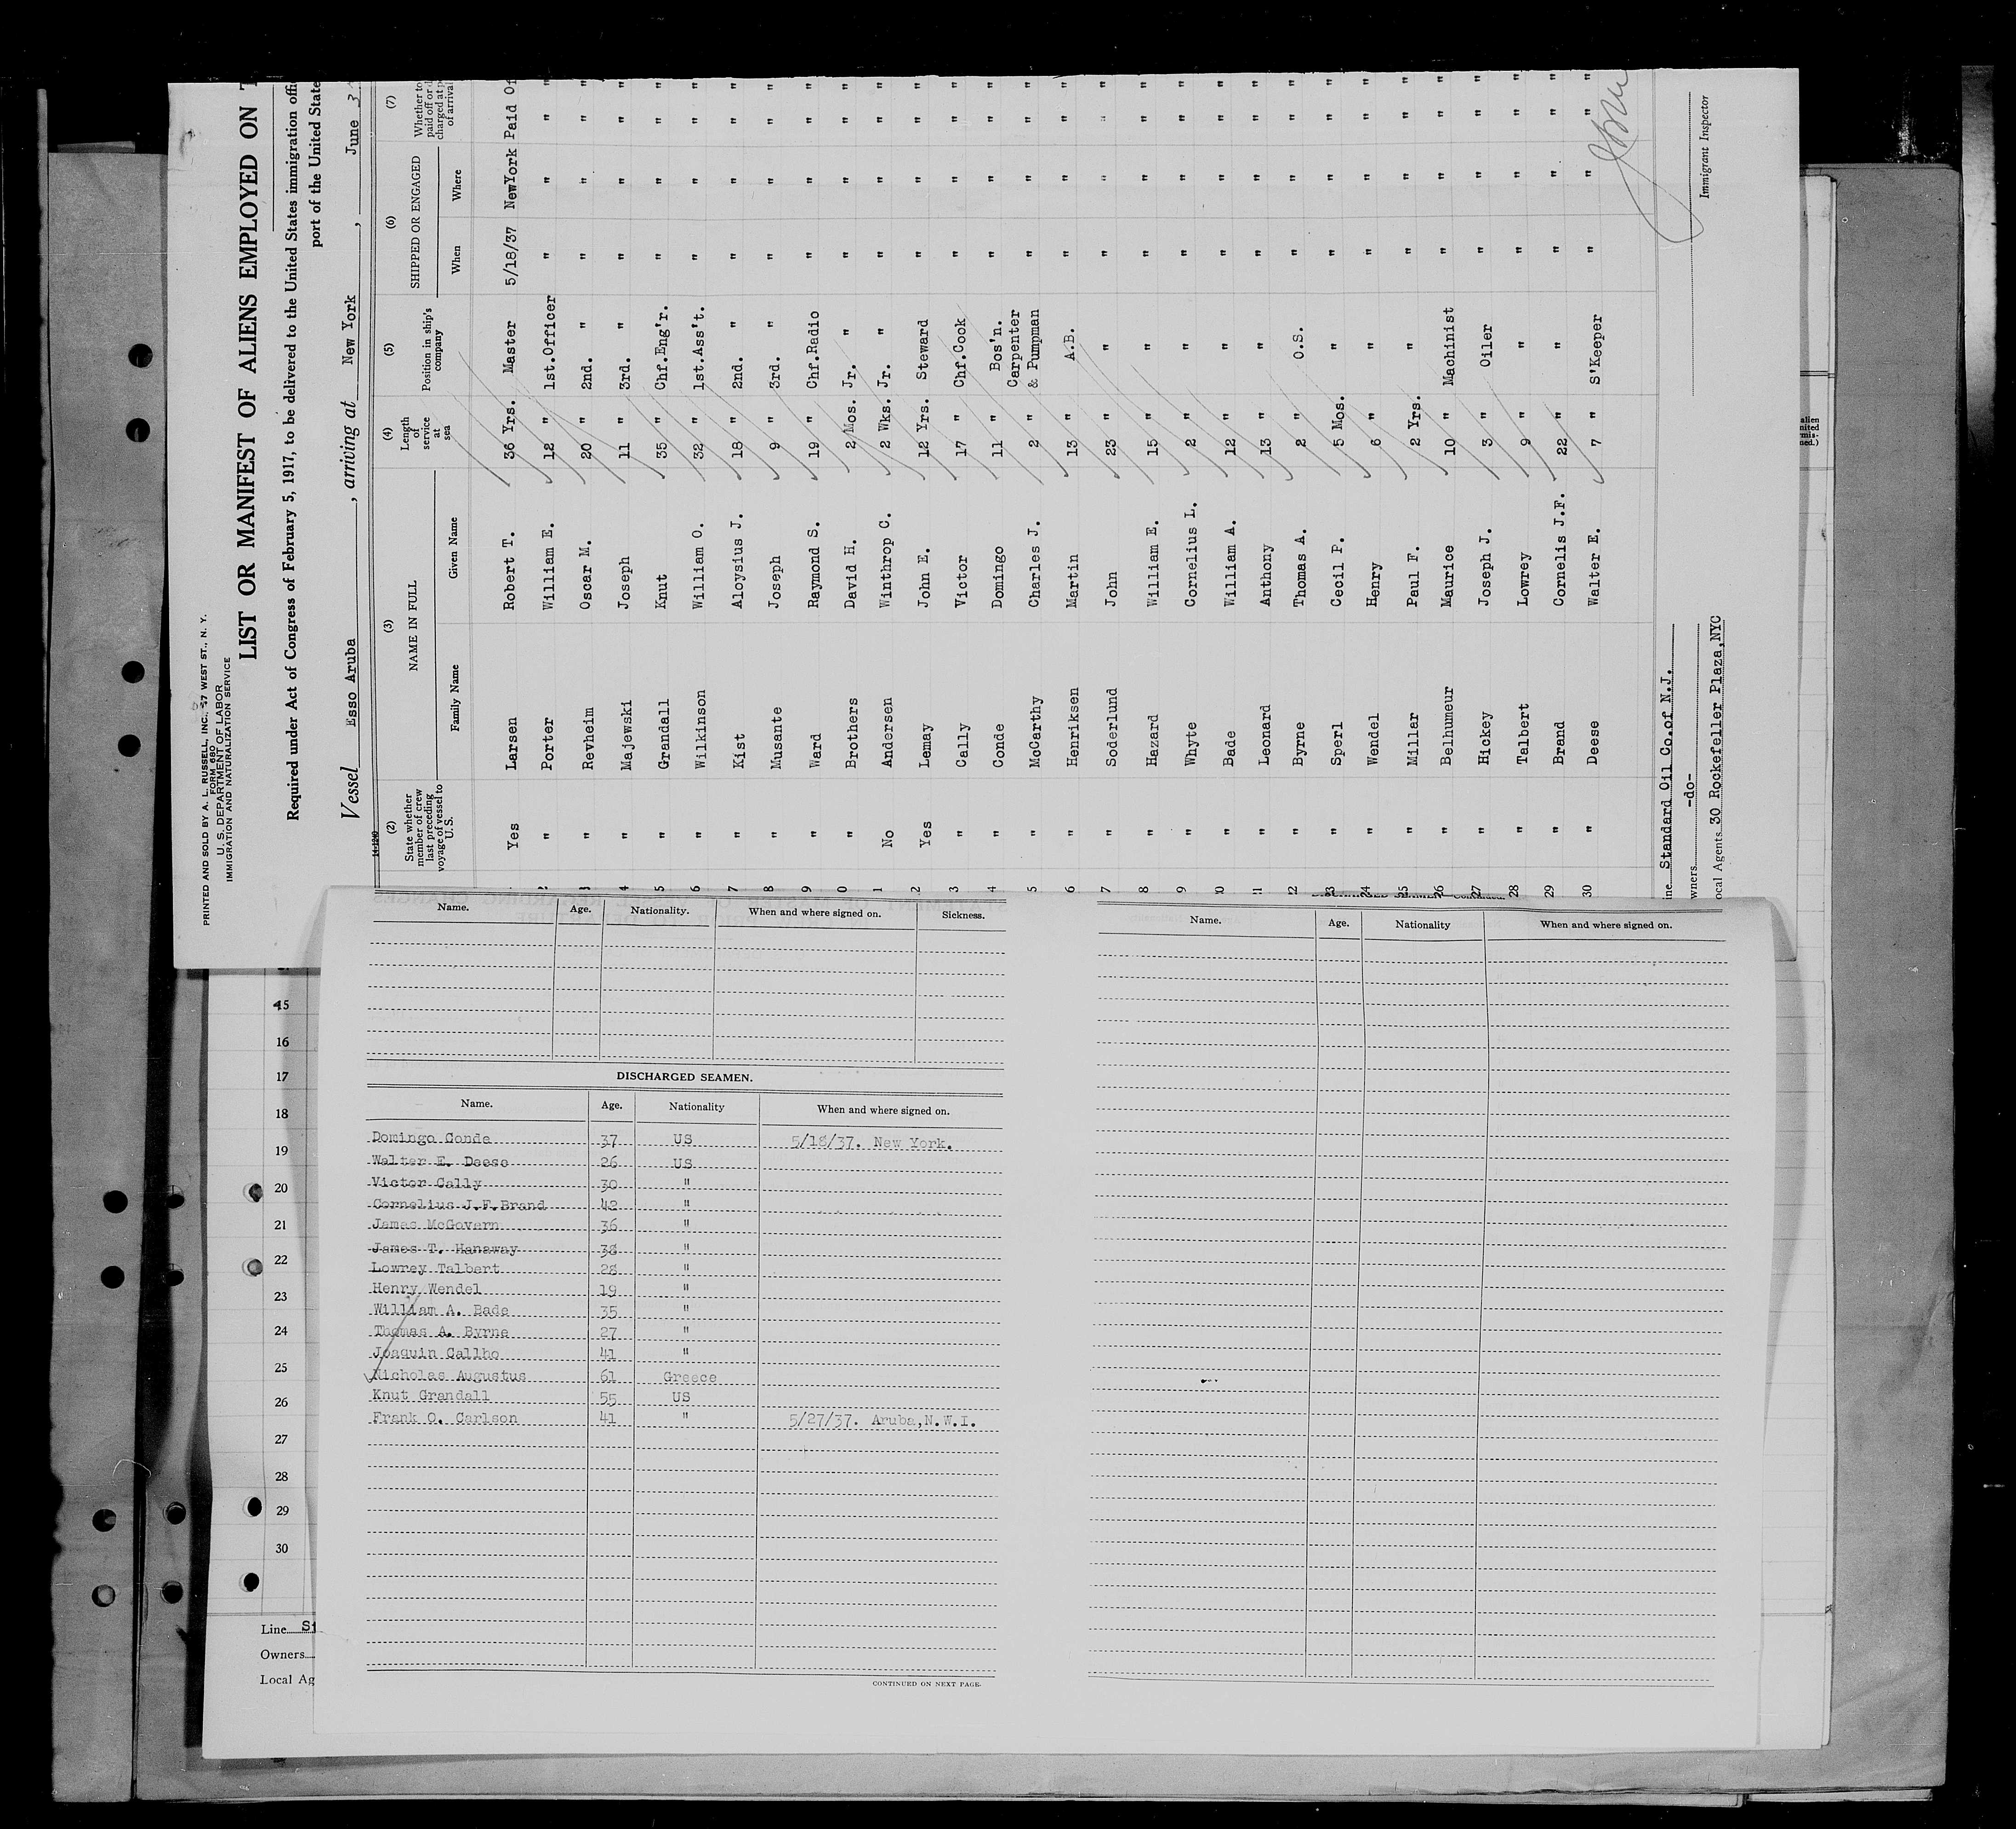 PRINTED AND SOLD BY A. L. RUSSELL, INC., 57 WEST ST., N. Y.
FORM 680
U. S. DEPARTMENT OF LABOR
IMMIGRATION AND NATURALIZATION SERVICE
LIST OR MANIFEST OF ALIENS EMPLOYED ON
Required under Act of Congress of February 5, 1917, to be delivered to the United States immigration
port of the United State
Vessel Esso Aruba, arriving at New York, June 3
14-1240
(2) (3) (4) (5) (6) (7)
State whether member of crew last preceding voyage of vessel to U.S. NAME IN FULL Length of service at sea Position in ship's company SHIPPED OR ENGAGED Whether to paid off or charged at of arrival
Family Name Given Name When Where
Yes Larsen Robert T. 36 Yrs. Master 5/18/37 NewYork Paid Of
2 " Porter William E. 12 " 1st.Officer " " " "
3 " Revheim Oscar M. 20 " 2nd. " " " " "
4 " Majewski Joseph 11 " 3rd. " " " " "
5 " Grandall Knut 35 " Chf.Eng'r. " " " "
6 " Wilkinson William O. 32 " 1st.Ass't. " " " "
7 " Kist Aloysius J. 18 " 2nd. " " " " "
8 " Musante Joseph 9 " 3rd. " " " " "
9 " Ward Raymond S. 19 " Chf.Radio " " " "
0 " Brothers David H. 2 Mos. Jr. " " " " "
1 No Andersen Winthrop C. 2 Wks. Jr. " " " " "
2 Yes Lemay John E. 12 Yrs. Steward " " " "
3 " Cally Victor 17 " Chf.Cook " " " "
4 " Conde Domingo 11 " Bos'n. " " " "
5 " McCarthy Charles J. 2 " Carpenter & Pumpman " " " "
6 " Henriksen Martin 13 " A.B. " " " "
7 " Soderlund John 23 " " " " " "
8 " Hazard William E. 15 " " " " " "
9 " Whyte Cornelius L. 2 " " " " " "
20 " Bade William A. 12 " " " " " "
21 " Leonard Anthony 13 " " " " " "
22 " Byrne Thomas A. 2 " O.S. " " " "
23 " Sperl Cecil P. 5 Mos. " " " " "
24 " Wendel Henry 6 " " " " " "
25 " Millar Paul F. 2 Yrs. " " " " "
26 " Belhumeur Maurice 10 " Machinist " " " "
27 " Hickey Joseph J. 3 " Oiler " " " "
28 " Talbert Lowrey 9 " " " " " "
29 " Brand Cornelis J.F. 22 " " " " " "
30 " Deese Walter E. 7 " S'Keeper " " " "
ine Standard Oil Co.of N.J.
wners -do-
ocal Agents 30 Rockefeller Plaza,NYC
Immigrant Inspector
Name. Age. Nationality. When and where signed on. Sickness.
DISCHARGED SEAMEN.
Name. Age. Nationality When and where signed on.
Domingo Conde 37 US 5/18/37. New York.
Walter E. Deese 26 US
Victor Cally 30 "
Cornelius J.F.Brand 42 "
James McGovern 36 "
James T. Hanaway 38 "
Lowrey Talbert 28 "
Henry Wendel 19 "
William A. Bade 35 "
Thomas A. Byrne 27 "
Joaquin Callho 41 "
Nicholas Augustus 61 Greece
Knut Grandall 55 US
Frank O. Carlson 41 " 5/27/37. Aruba,N.W.I.
CONTINUED ON NEXT PAGE.
DISCHARGED SEAMEN Continued.
Name. Age. Nationality When and where signed on.
15
16
17
18
19
20
21
22
23
24
25
26
27
28
29
30
Line St
Owners
Local Ag